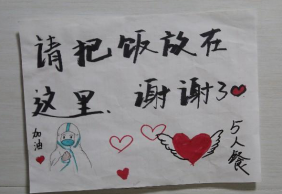 请把饭放在
这里、谢谢了
加油
5人餐